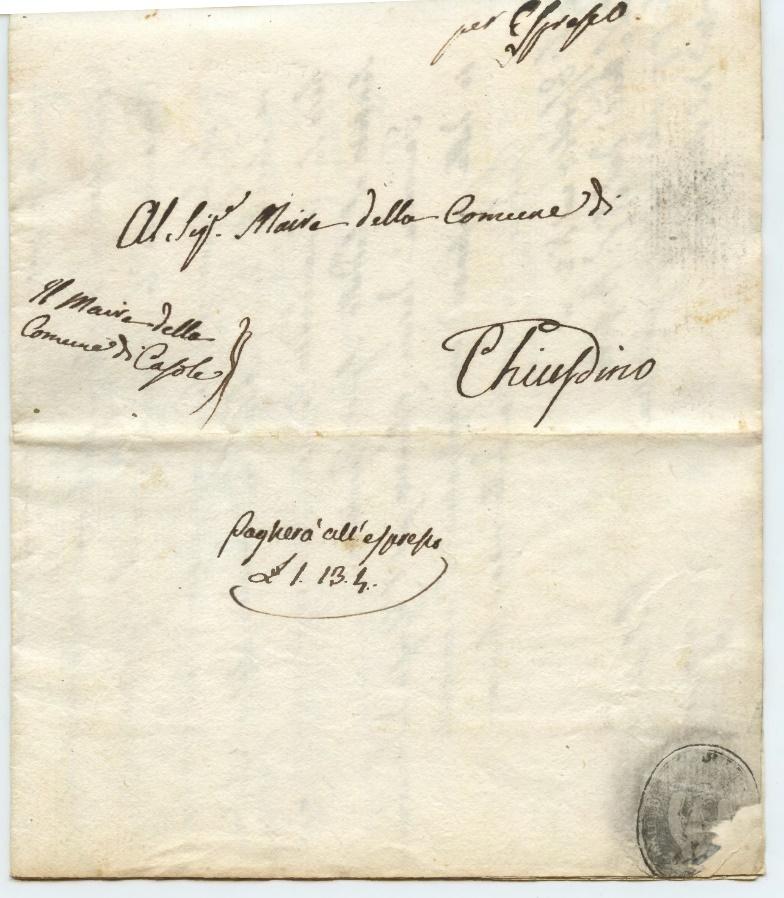 per Espresso
Al Sig.r Maire della Comune di
Il Maire della
Comune di Casole
Chiusdino
Pagherà all'espresso
L 1. 13. 4.